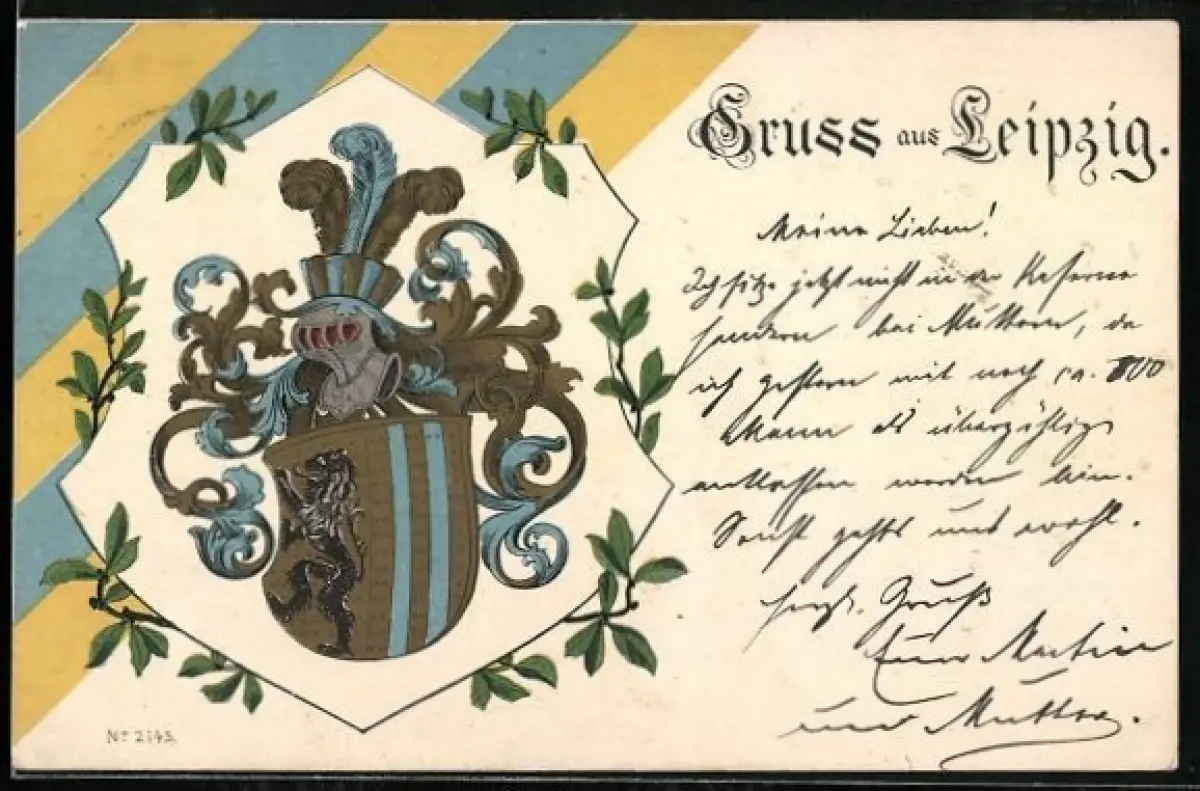 Gruss aus Leipzig.
Meine Lieben!
Ich sitze jetzt nicht in der Kaserne
sondern bei Muttern, da
ich gestern mit noch ca. 800
Mann als überzählig
entlassen worden bin.
Sonst gehts uns wohl.
herzl. Gruß
Euer Martin
und Mutter.
No 2143.